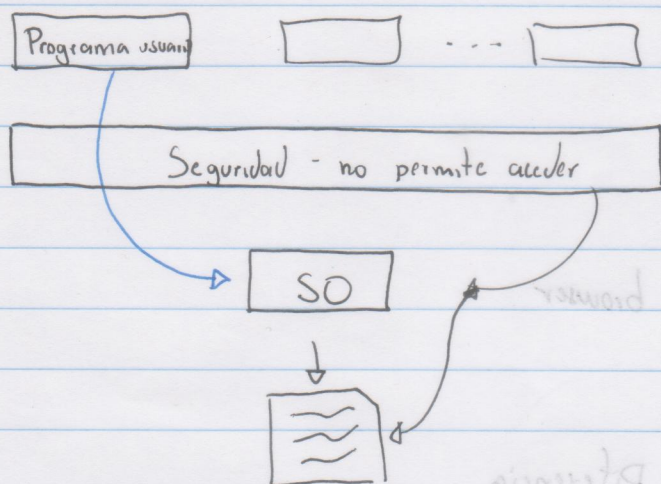 Programa usuari
. . . .
Seguridad - no permite acceder
SO
browser